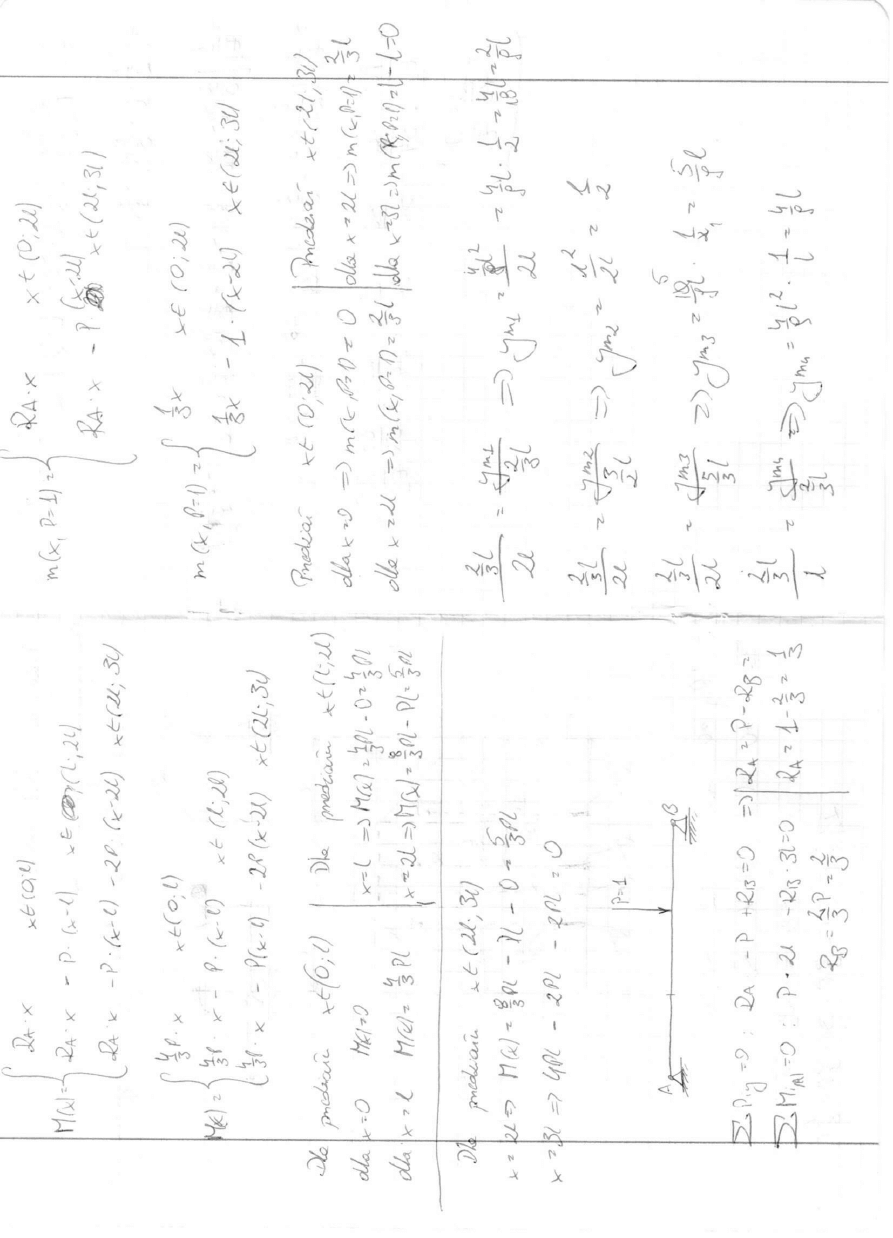 M(x) = { RA·x x∈(0;l)
RA·x - P·(x-l) x∈(l;2l)
RA·x - P·(x-l) - 2P·(x-2l) x∈(2l;3l)
M(x) = { 4/3P·x x∈(0;l)
4/3P·x - P·(x-l) x∈(l;2l)
4/3P·x - P(x-l) - 2P(x-2l) x∈(2l;3l)
Dla przedziału x∈(0;l)
dla x=0 M(x)=0
dla x=l M(x)= 4/3 Pl
Dla przedziału x∈(l;2l)
x=l => M(x)= 4/3Pl - 0 = 4/3Pl
x=2l => M(x)= 8/3Pl - Pl = 5/3Pl
Dla przedziału x∈(2l;3l)
x=2l => M(x)= 8/3Pl - Pl - 0 = 5/3Pl
x=3l => 4Pl - 2Pl - 2Pl = 0
P=1
A B
ΣPiy=0 : RA - P + RB=0 => RA = P-RB =
ΣMi(A)=0 : P·2l - RB·3l=0 RA = 1 - 2/3 = 1/3
RB = 2/3P = 2/3
m(x, P=1) = { RA·x x∈(0;2l)
RA·x - P(x-2l) x∈(2l;3l)
m(x, P=1) = { 1/3x x∈(0;2l)
1/3x - 1·(x-2l) x∈(2l;3l)
Przedział x∈(0;2l)
dla x=0 => m(x,P=1) = 0
dla x=2l => m(x,P=1) = 2/3l
Przedział x∈(2l;3l)
dla x=2l => m(x,P=1) = 2/3l
dla x=3l => m(x,P=1) = l-l=0
2/3l / 2l = ym1 / 2/3l => ym1 = 4/9l² / 2l = 4/9l · 1/2 = 4/18l = 2/9l
2/3l / 2l = ym2 / 3/2l => ym2 = l² / 2l = l/2
2/3l / 2l = ym3 / 5/3l => ym3 = 10/9l · 1/2 = 5/9l
2/3l / l = ym4 / 2/3l => ym4 = 4/9l² · 1/l = 4/9l